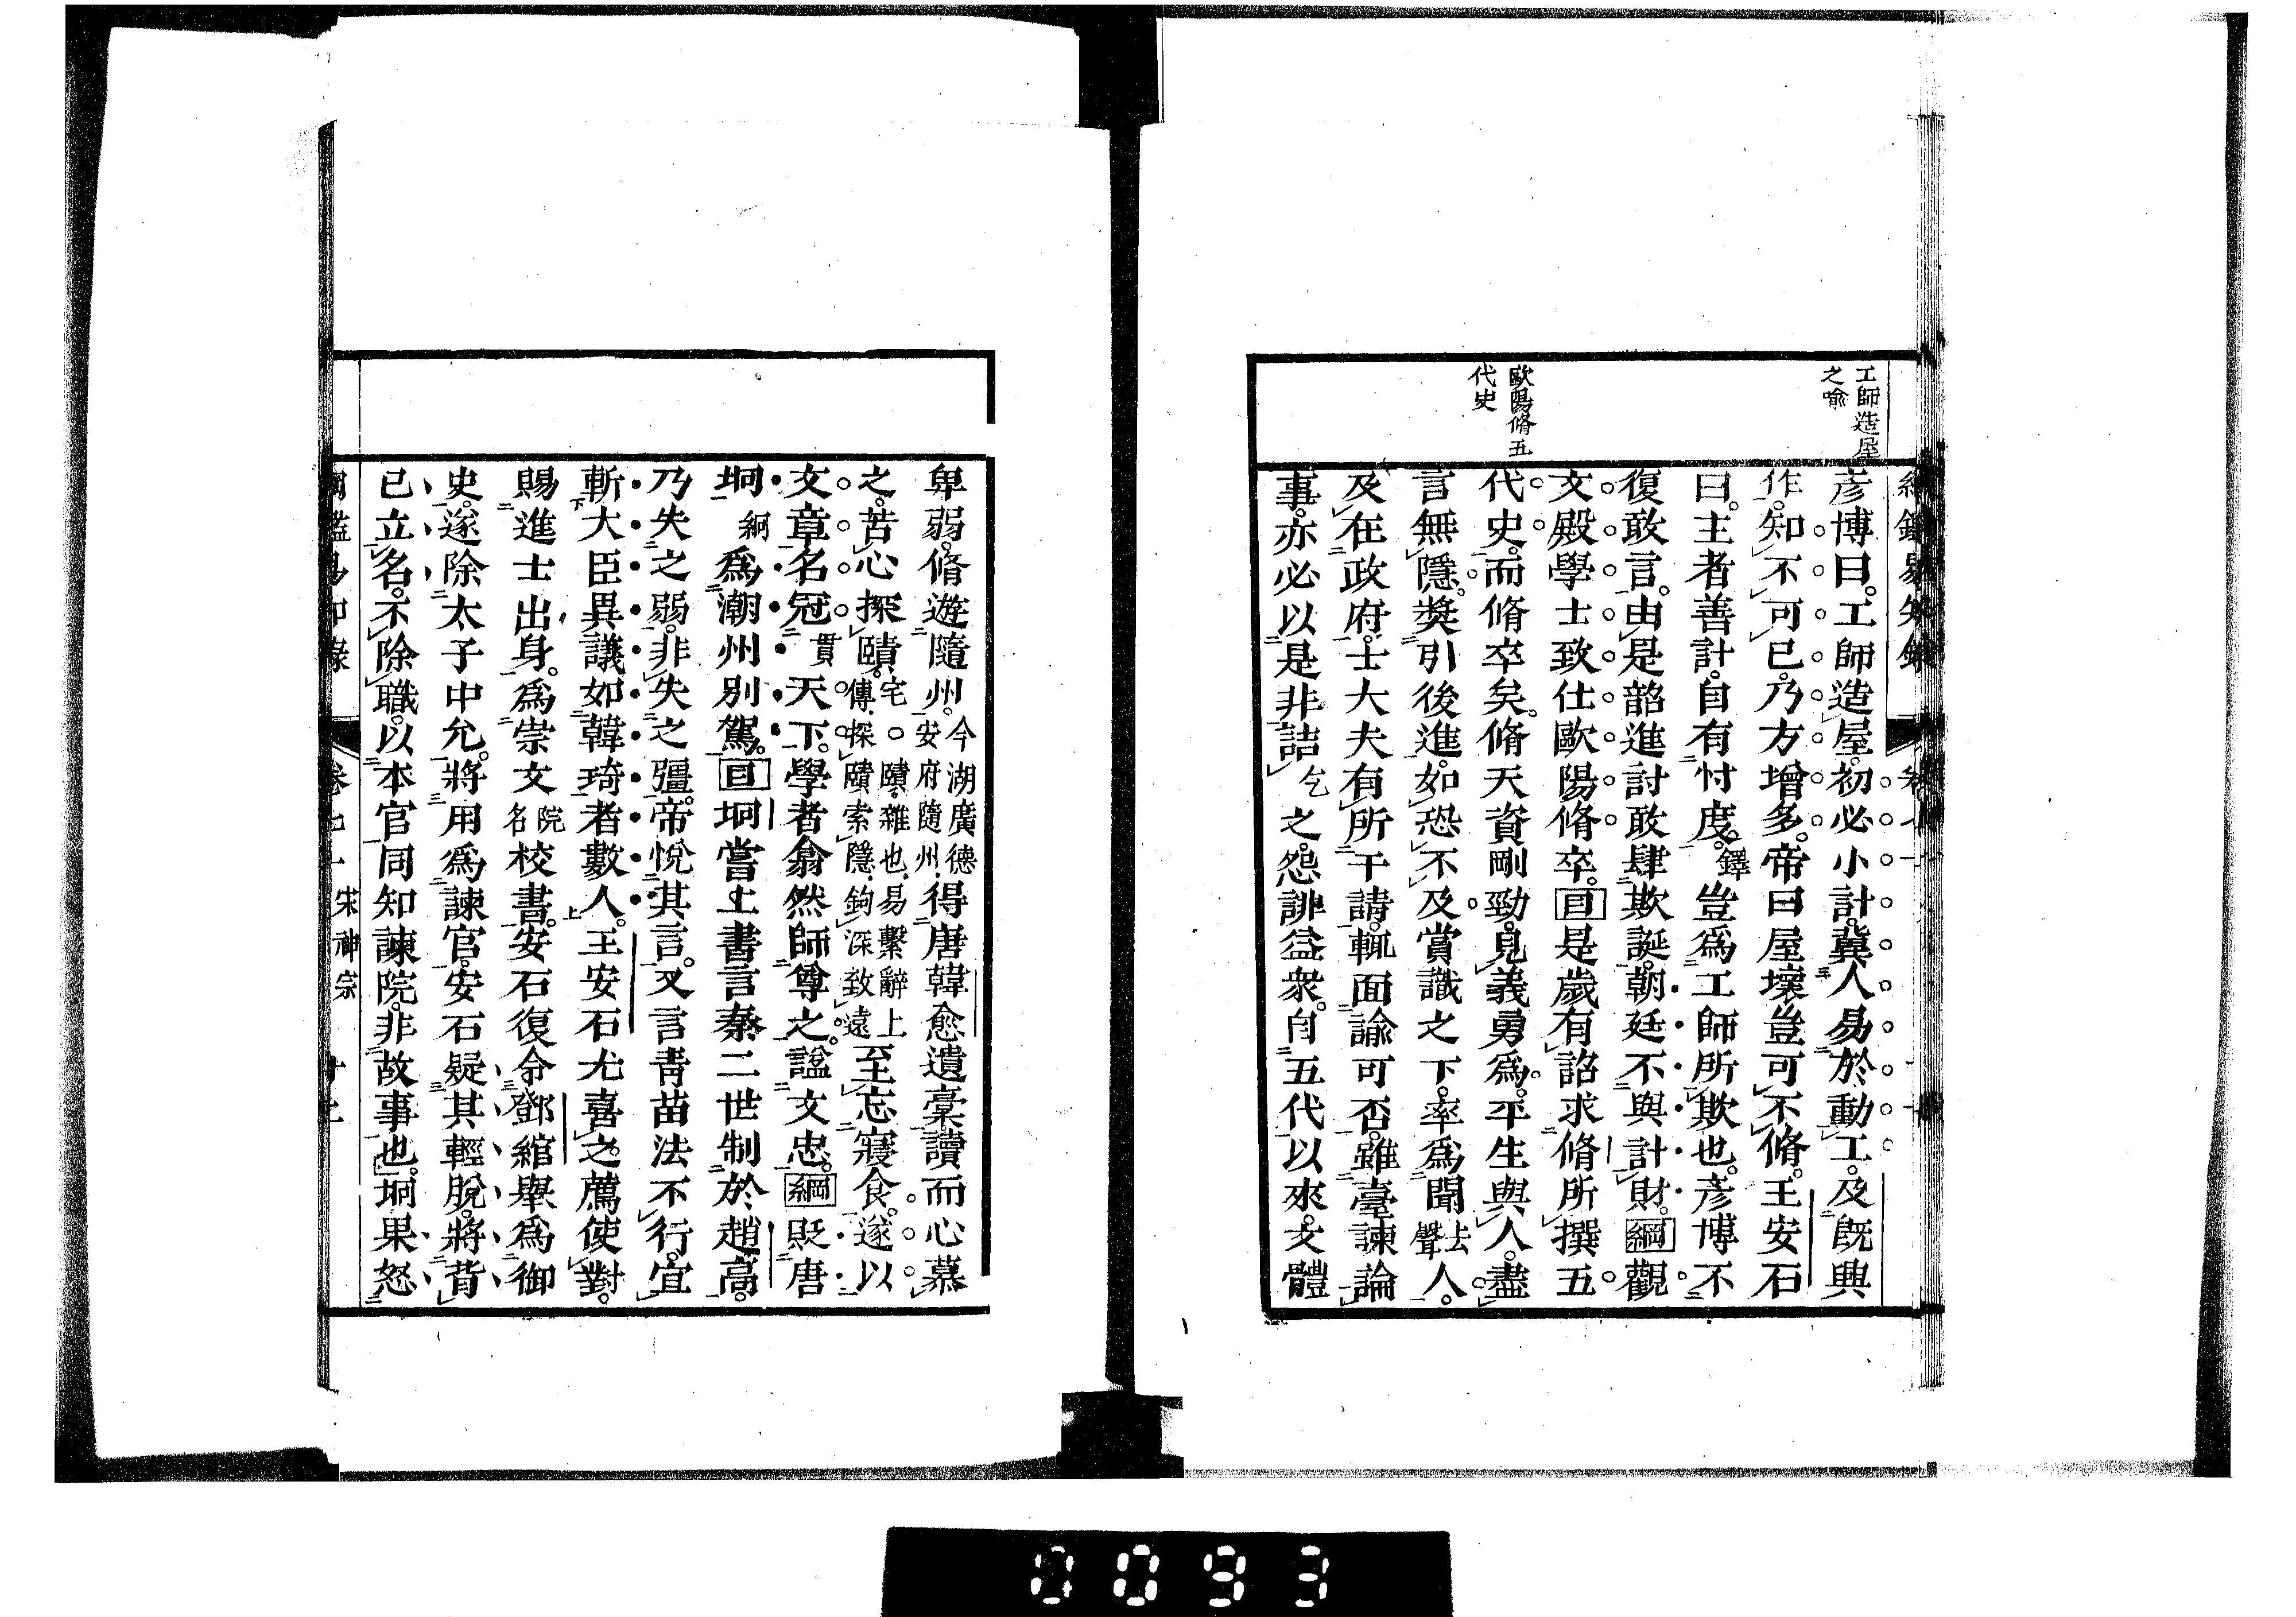 工師造屋
之喻
歐陽脩五
代史
彥博曰。工師造屋。初必小計。冀人易於動工。及既興
作。知不可已。乃方增多。帝曰屋壞豈可不脩。王安石
曰。主者善計。自有忖度。鐸豈爲工師所欺也。彥博不
復敢言。由是韶進討敢肆欺誕。朝廷不與計財。綱觀
文殿學士致仕歐陽脩卒。目是歲有詔求脩所撰五
代史。而脩卒矣。脩天資剛勁。見義勇爲。平生與人。盡
言無隱。獎引後進。如恐不及。賞識之下。率爲聞去聲人。
及在政府。士大夫有所干請。輒面諭可否。雖臺諫論
事。亦必以是非詰乞之。怨誹益衆。自五代以來。文體
卑弱。脩遊隨州。今湖廣德安府隨州.得唐韓愈遺稾讀而心慕
之。苦心探賾。宅○賾.雜也.易繫辭上傳.探賾索隱.鉤深致遠至忘寢食。遂以
文章名冠貫天下。學者翕然師尊之。諡文忠。綱貶唐
坰絅爲潮州別駕。目坰嘗上書言秦二世制於趙高。
乃失之弱。非失之彊。帝悅其言。又言青苗法不行。宜
斬大臣異議如韓琦者數人。王安石尤喜之。薦使對。
賜進士出身。爲崇文院名校書。安石復令鄧綰舉爲御
史。遂除太子中允。將用爲諫官。安石疑其輕脫。將背
已立名。不除職。以本官同知諫院。非故事也。坰果怒
卷七十 宋神宗
0093